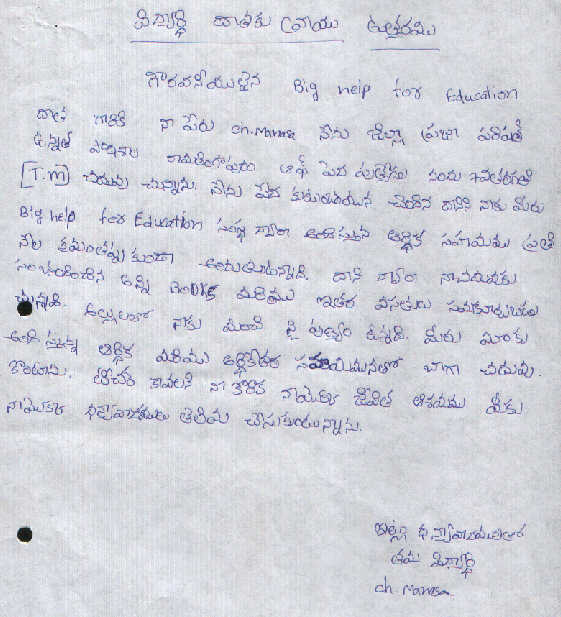 విద్యార్థి దాతకు వ్రాయు ఉత్తరము
గౌరవనీయులైన Big help for Education
దాత గారికి నా పేరు ch.Manasa నేను జిల్లా ప్రజా పరిషత్
ఉన్నత పాఠశాల నందు 9వతరగతి
[T.m] చదువు చున్నాను. నేను పేద కుటుంబమున చెందిన దానిని నాకు మీరు
Big help for Education సంస్థ ద్వారా అందిస్తున్న ఆర్థిక సహాయము ప్రతి
నెల క్రమంతప్పకుండా అందుతున్నది. దాని ద్వారా నాచదువుకు
సంబంధించిన అన్ని Books మరియు ఇతర వసతులు
చున్నది. నాకు మంచి ఉన్నది. మీరు మాకు
అందిస్తున్న ఆర్థిక మరియు ఆర్థికేతర బాగా చదువు
కొంటాను. టీచర్ కావాలని నా కోరిక నాయొక్క జీవిత ఆశయము మీకు
నాయొక్క ధన్యవాదములు తెలియ చేసుకుంటున్నాను.
ఇట్లు ధన్యవాదములతో
తమ విద్యార్థి
ch.Manasa